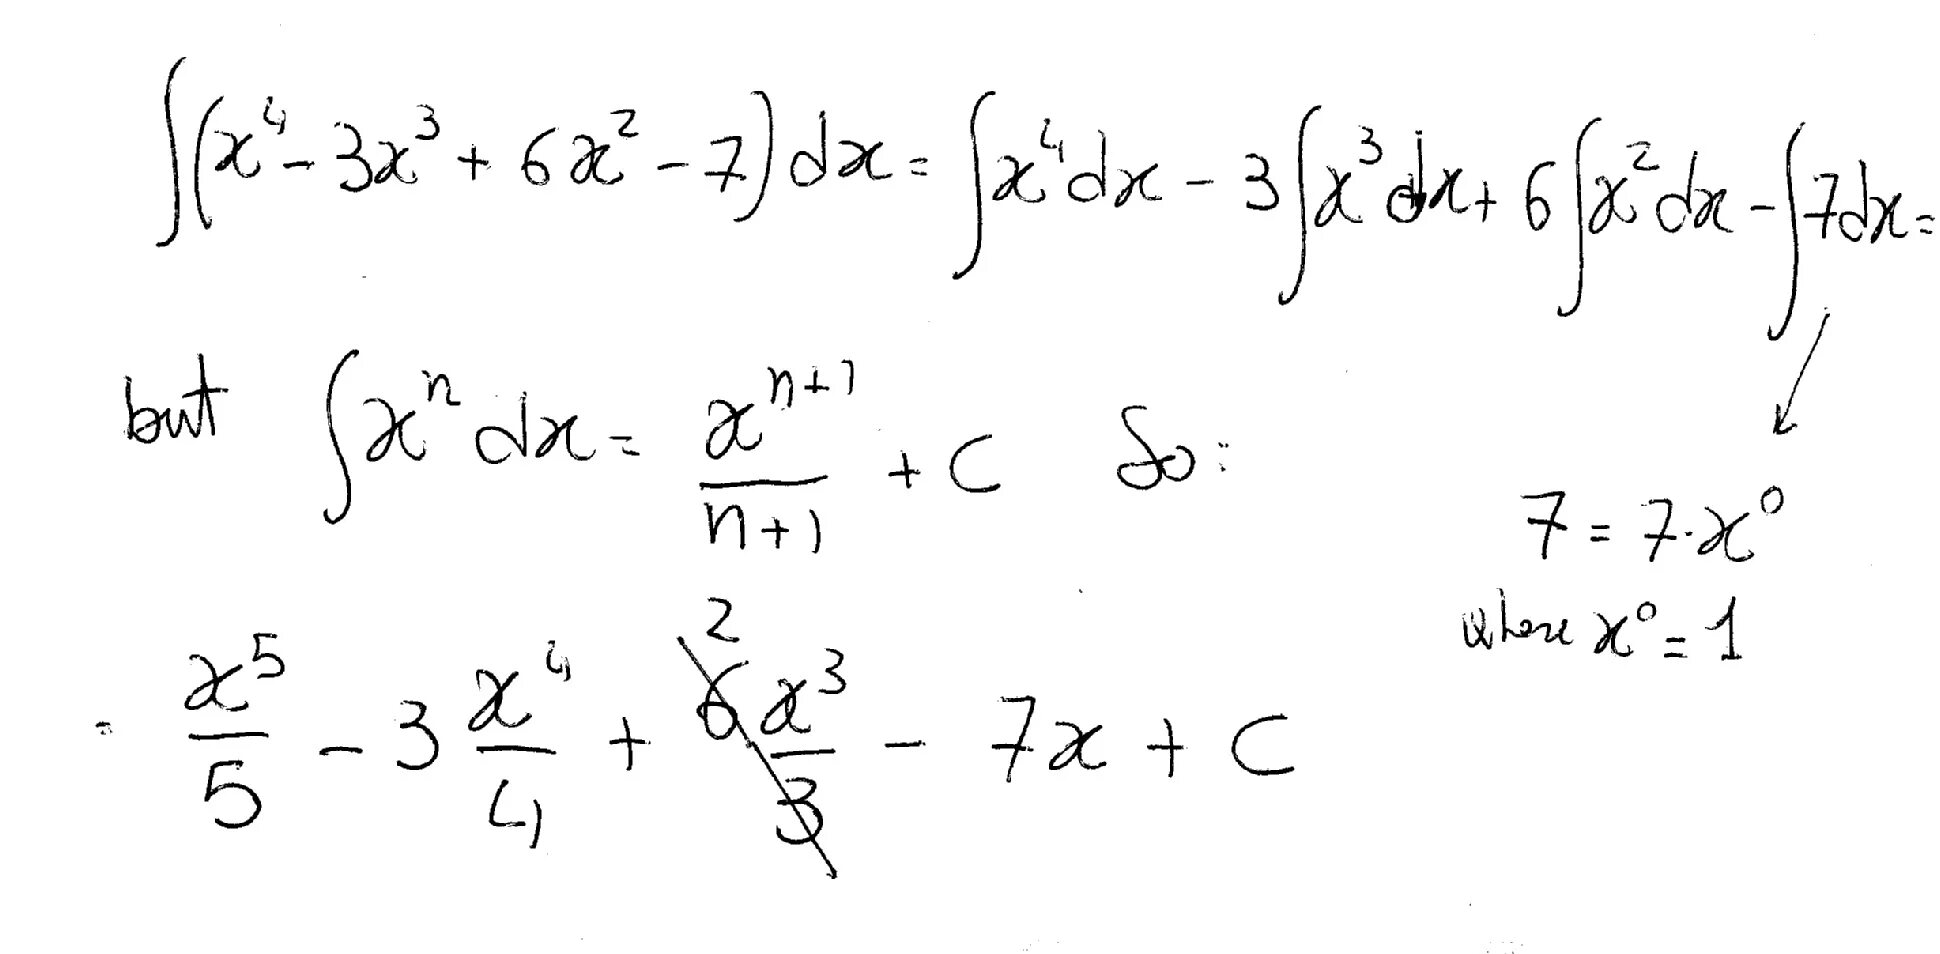 ∫(x⁴ - 3x³ + 6x² - 7)dx = ∫x⁴dx - 3∫x³dx + 6∫x²dx - ∫7dx =
but ∫xⁿ dx = xⁿ⁺¹/(n+1) + C So:
7 = 7·x⁰
where x⁰ = 1
= x⁵/5 - 3 x⁴/4 + 6 x³/3 - 7x + C
2